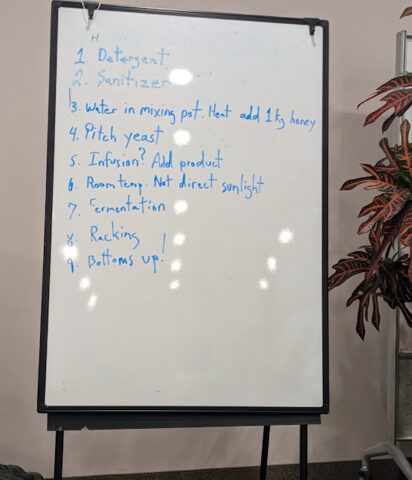 H
1. Detergent
2. Sanitizer
3. Water in mixing pot. Heat add 1kg honey
4. Pitch yeast
5. Infusion? Add product
6. Room temp. Not direct sunlight
7. Fermentation
8. Racking
9. Bottoms up!